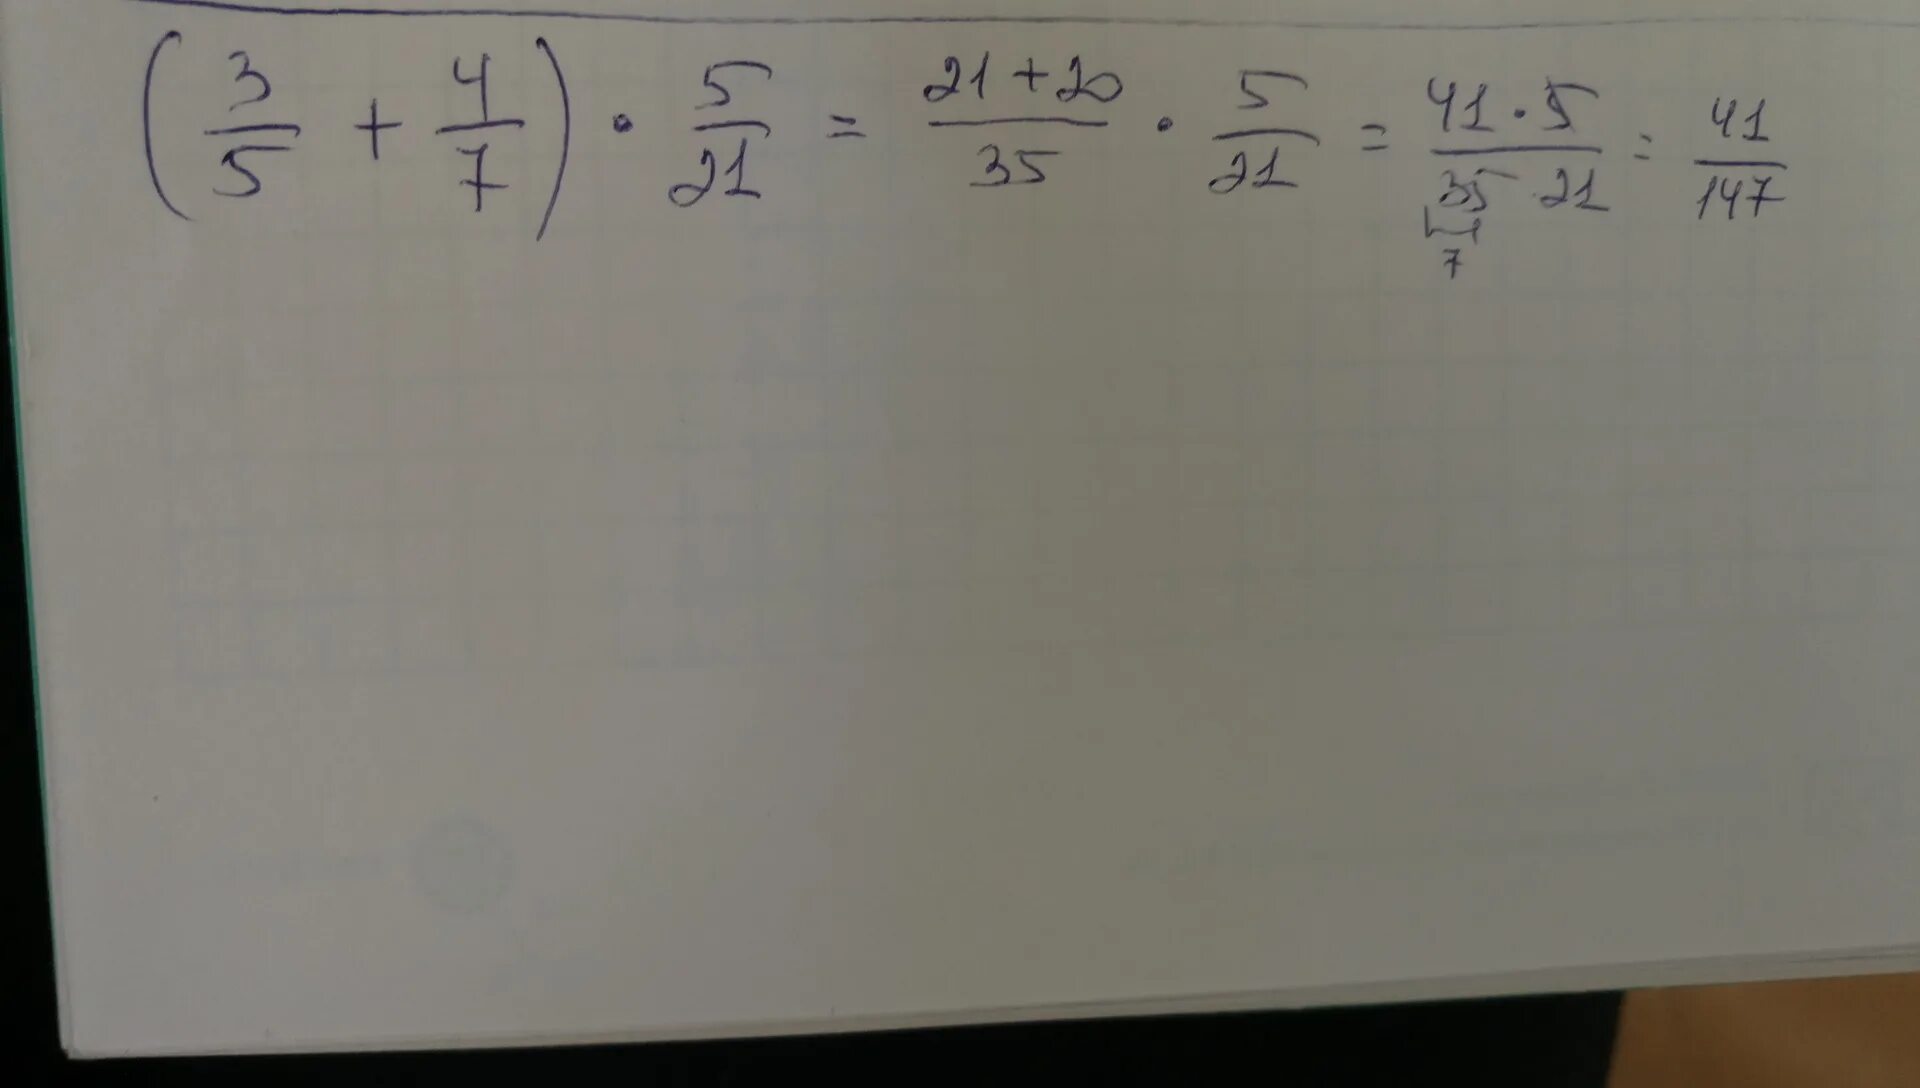 (3/5 + 4/7) · 5/21 = (21+20)/35 · 5/21 = (41·5)/(35 21) = 41/147
7